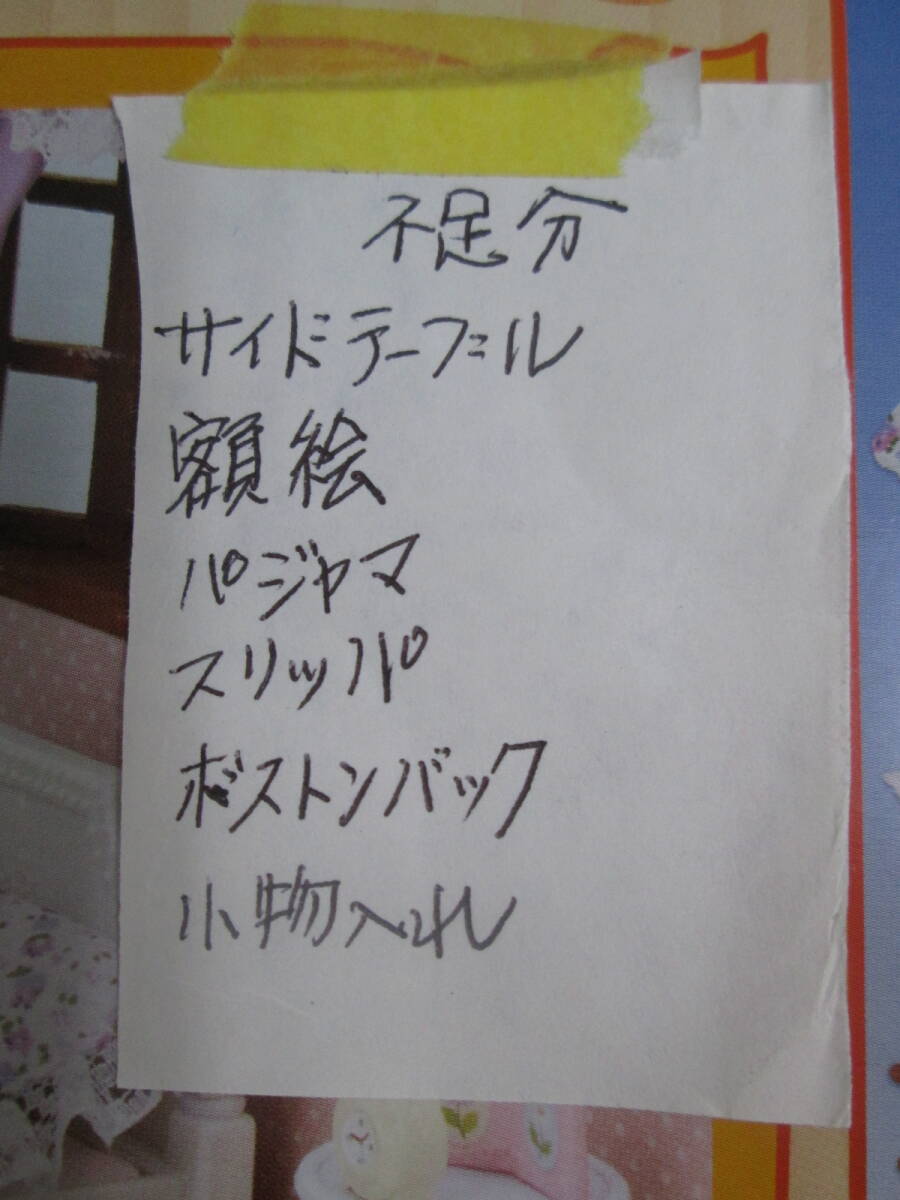 不足分
サイドテーブル
額絵
パジャマ
スリッパ
ボストンバック
小物入れ